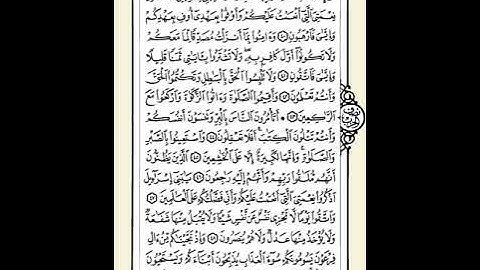 نِعْمَتِيَ ٱلَّتِيٓ أَنْعَمْتُ عَلَيْكُمْ وَأَوْفُوا۟ بِعَهْدِيٓ أُوفِ بِعَهْدِكُمْ
وَإِيَّٰيَ فَٱرْهَبُونِ ٤٠ وَءَامِنُوا۟ بِمَآ أَنزَلْتُ مُصَدِّقًا لِّمَا مَعَكُمْ
وَلَا تَكُونُوٓا۟ أَوَّلَ كَافِرٍۭ بِهِۦ وَلَا تَشْتَرُوا۟ بِـَٔايَٰتِي ثَمَنًا قَلِيلًا
وَإِيَّٰيَ فَٱتَّقُونِ ٤١ وَلَا تَلْبِسُوا۟ ٱلْحَقَّ بِٱلْبَٰطِلِ وَتَكْتُمُوا۟ ٱلْحَقَّ
وَأَنتُمْ تَعْلَمُونَ ٤٢ وَأَقِيمُوا۟ ٱلصَّلَوٰةَ وَءَاتُوا۟ ٱلزَّكَوٰةَ وَٱرْكَعُوا۟ مَعَ
ٱلرَّٰكِعِينَ ٤٣ أَتَأْمُرُونَ ٱلنَّاسَ بِٱلْبِرِّ وَتَنسَوْنَ أَنفُسَكُمْ
وَأَنتُمْ تَتْلُونَ ٱلْكِتَٰبَ أَفَلَا تَعْقِلُونَ ٤٤ وَٱسْتَعِينُوا۟ بِٱلصَّبْرِ
وَٱلصَّلَوٰةِ وَإِنَّهَا لَكَبِيرَةٌ إِلَّا عَلَى ٱلْخَٰشِعِينَ ٤٥ ٱلَّذِينَ يَظُنُّونَ
أَنَّهُم مُّلَٰقُوا۟ رَبِّهِمْ وَأَنَّهُمْ إِلَيْهِ رَٰجِعُونَ ٤٦ يَٰبَنِيٓ إِسْرَٰٓءِيلَ
ٱذْكُرُوا۟ نِعْمَتِيَ ٱلَّتِيٓ أَنْعَمْتُ عَلَيْكُمْ وَأَنِّي فَضَّلْتُكُمْ عَلَى ٱلْعَٰلَمِينَ ٤٧
وَٱتَّقُوا۟ يَوْمًا لَّا تَجْزِي نَفْسٌ عَن نَّفْسٍ شَيْـًٔا وَلَا يُقْبَلُ مِنْهَا شَفَٰعَةٌ
وَلَا يُؤْخَذُ مِنْهَا عَدْلٌ وَلَا هُمْ يُنصَرُونَ ٤٨ وَإِذْ نَجَّيْنَٰكُم مِّنْ ءَالِ
فِرْعَوْنَ يَسُومُونَكُمْ سُوٓءَ ٱلْعَذَابِ يُذَبِّحُونَ أَبْنَآءَكُمْ وَيَسْتَحْيُونَ